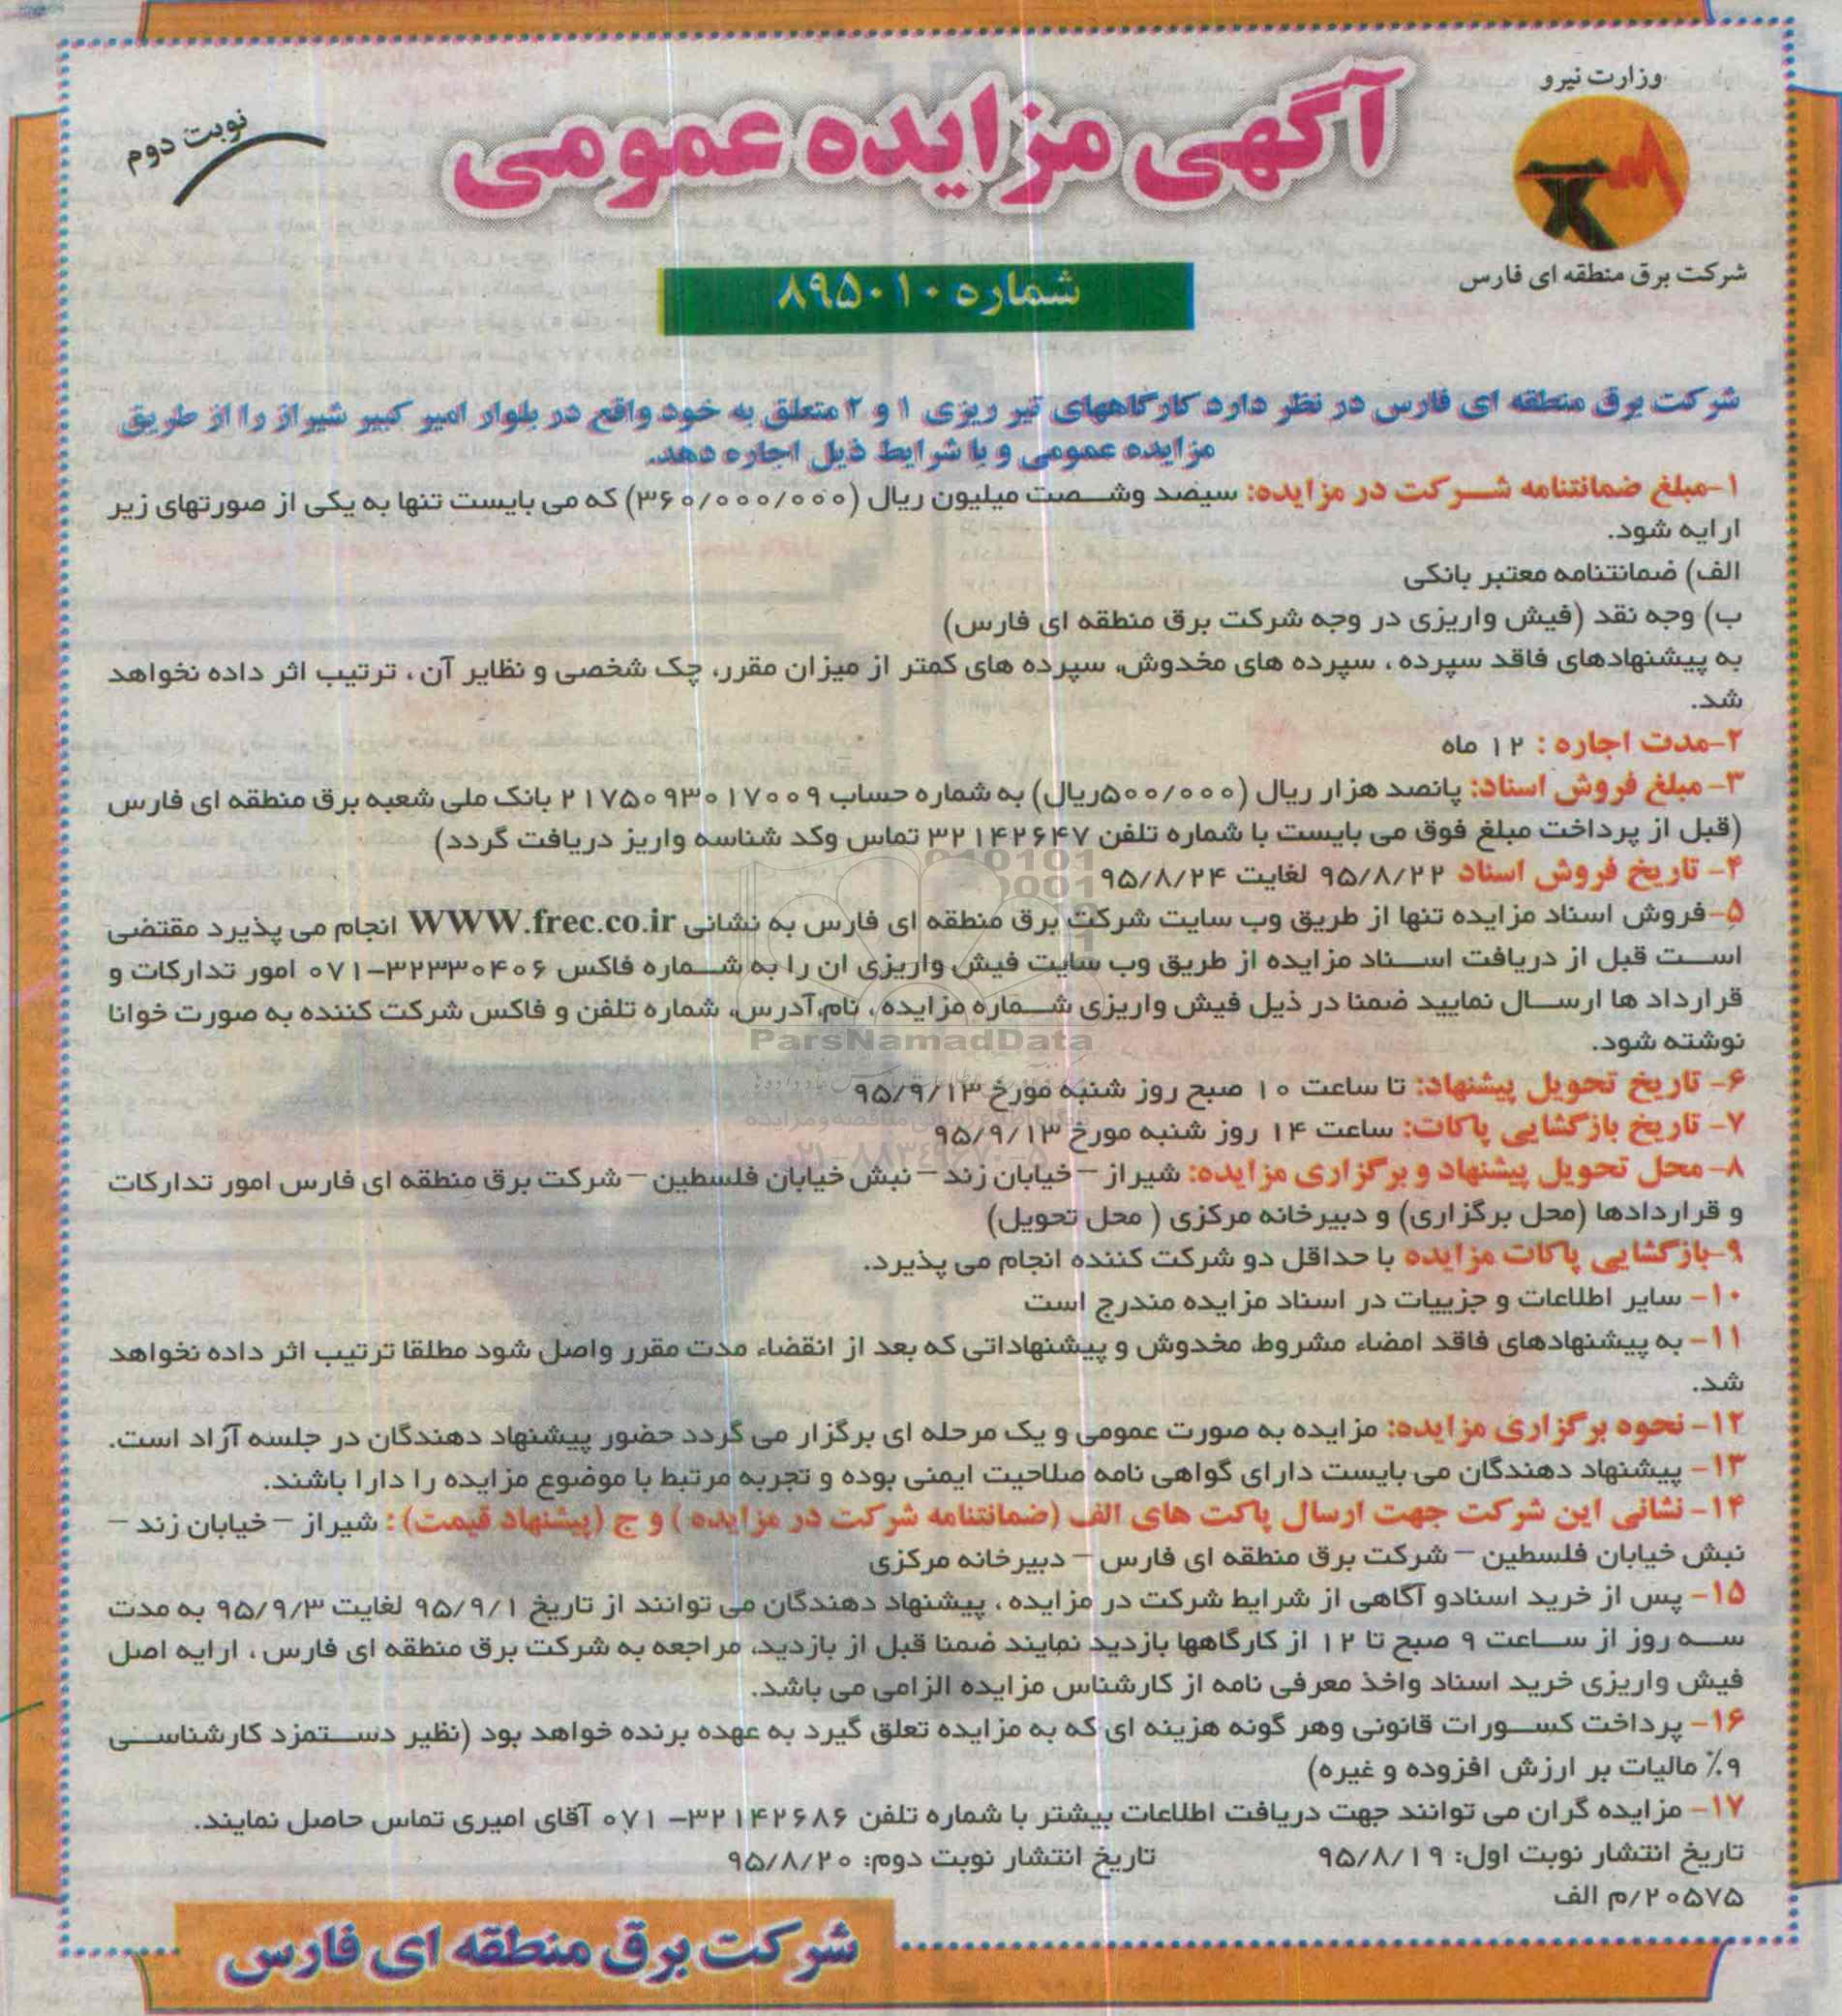 وزارت نیرو
شرکت برق منطقه ای فارس
آگهی مزایده عمومی
نوبت دوم
شماره ۸۹۵۰۱۰
شرکت برق منطقه ای فارس در نظر دارد کارگاههای تیر ریزی ۱ و ۲ متعلق به خود واقع در بلوار امیر کبیر شیراز را از طریق
مزایده عمومی و با شرایط ذیل اجاره دهد.
۱-مبلغ ضمانتنامه شرکت در مزایده: سیصد وشصت میلیون ریال (۳۶۰/۰۰۰/۰۰۰) که می بایست تنها به یکی از صورتهای زیر
ارایه شود.
الف) ضمانتنامه معتبر بانکی
ب) وجه نقد (فیش واریزی در وجه شرکت برق منطقه ای فارس)
به پیشنهادهای فاقد سپرده ، سپرده های مخدوش، سپرده های کمتر از میزان مقرر، چک شخصی و نظایر آن ، ترتیب اثر داده نخواهد
شد.
۲-مدت اجاره : ۱۲ ماه
۳- مبلغ فروش اسناد: پانصد هزار ریال (۵۰۰/۰۰۰ریال) به شماره حساب ۲۱۷۵۰۹۳۰۱۷۰۰۹ بانک ملی شعبه برق منطقه ای فارس
(قبل از پرداخت مبلغ فوق می بایست با شماره تلفن ۳۲۱۴۲۶۴۷ تماس وکد شناسه واریز دریافت گردد)
۴- تاریخ فروش اسناد ۹۵/۸/۲۲ لغایت ۹۵/۸/۲۴
۵-فروش اسناد مزایده تنها از طریق وب سایت شرکت برق منطقه ای فارس به نشانی WWW.frec.co.ir انجام می پذیرد مقتضی
است قبل از دریافت اسناد مزایده از طریق وب سایت فیش واریزی ان را به شماره فاکس ۳۲۳۳۰۴۰۶-۰۷۱ امور تدارکات و
قرارداد ها ارسال نمایید ضمنا در ذیل فیش واریزی شماره مزایده ، نام،آدرس، شماره تلفن و فاکس شرکت کننده به صورت خوانا
نوشته شود.
۶- تاریخ تحویل پیشنهاد: تا ساعت ۱۰ صبح روز شنبه مورخ ۹۵/۹/۱۳
۷- تاریخ بازگشایی پاکات: ساعت ۱۴ روز شنبه مورخ ۹۵/۹/۱۳
۸- محل تحویل پیشنهاد و برگزاری مزایده: شیراز – خیابان زند – نبش خیابان فلسطین – شرکت برق منطقه ای فارس امور تدارکات
و قراردادها (محل برگزاری) و دبیرخانه مرکزی ( محل تحویل)
۹-بازگشایی پاکات مزایده با حداقل دو شرکت کننده انجام می پذیرد.
۱۰- سایر اطلاعات و جزییات در اسناد مزایده مندرج است
۱۱- به پیشنهادهای فاقد امضاء، مشروط، مخدوش و پیشنهاداتی که بعد از انقضاء مدت مقرر واصل شود مطلقا ترتیب اثر داده نخواهد
شد.
۱۲- نحوه برگزاری مزایده: مزایده به صورت عمومی و یک مرحله ای برگزار می گردد حضور پیشنهاد دهندگان در جلسه آزاد است.
۱۳- پیشنهاد دهندگان می بایست دارای گواهی نامه صلاحیت ایمنی بوده و تجربه مرتبط با موضوع مزایده را دارا باشند.
۱۴- نشانی این شرکت جهت ارسال پاکت های الف (ضمانتنامه شرکت در مزایده ) و ج (پیشنهاد قیمت) : شیراز – خیابان زند –
نبش خیابان فلسطین – شرکت برق منطقه ای فارس – دبیرخانه مرکزی
۱۵- پس از خرید اسنادو آگاهی از شرایط شرکت در مزایده ، پیشنهاد دهندگان می توانند از تاریخ ۹۵/۹/۱ لغایت ۹۵/۹/۳ به مدت
سه روز از ساعت ۹ صبح تا ۱۲ از کارگاهها بازدید نمایند ضمنا قبل از بازدید، مراجعه به شرکت برق منطقه ای فارس ، ارایه اصل
فیش واریزی خرید اسناد واخذ معرفی نامه از کارشناس مزایده الزامی می باشد.
۱۶- پرداخت کسورات قانونی وهر گونه هزینه ای که به مزایده تعلق گیرد به عهده برنده خواهد بود (نظیر دستمزد کارشناسی
۹٪ مالیات بر ارزش افزوده و غیره)
۱۷- مزایده گران می توانند جهت دریافت اطلاعات بیشتر با شماره تلفن ۳۲۱۴۲۶۸۶- ۰۷۱ آقای امیری تماس حاصل نمایند.
تاریخ انتشار نوبت اول: ۹۵/۸/۱۹ تاریخ انتشار نوبت دوم: ۹۵/۸/۲۰
۲۰۵۷۵/م الف
شرکت برق منطقه ای فارس
ParsNamadData
۰۲۱-۸۸۳۴۹۶۷۰-۵